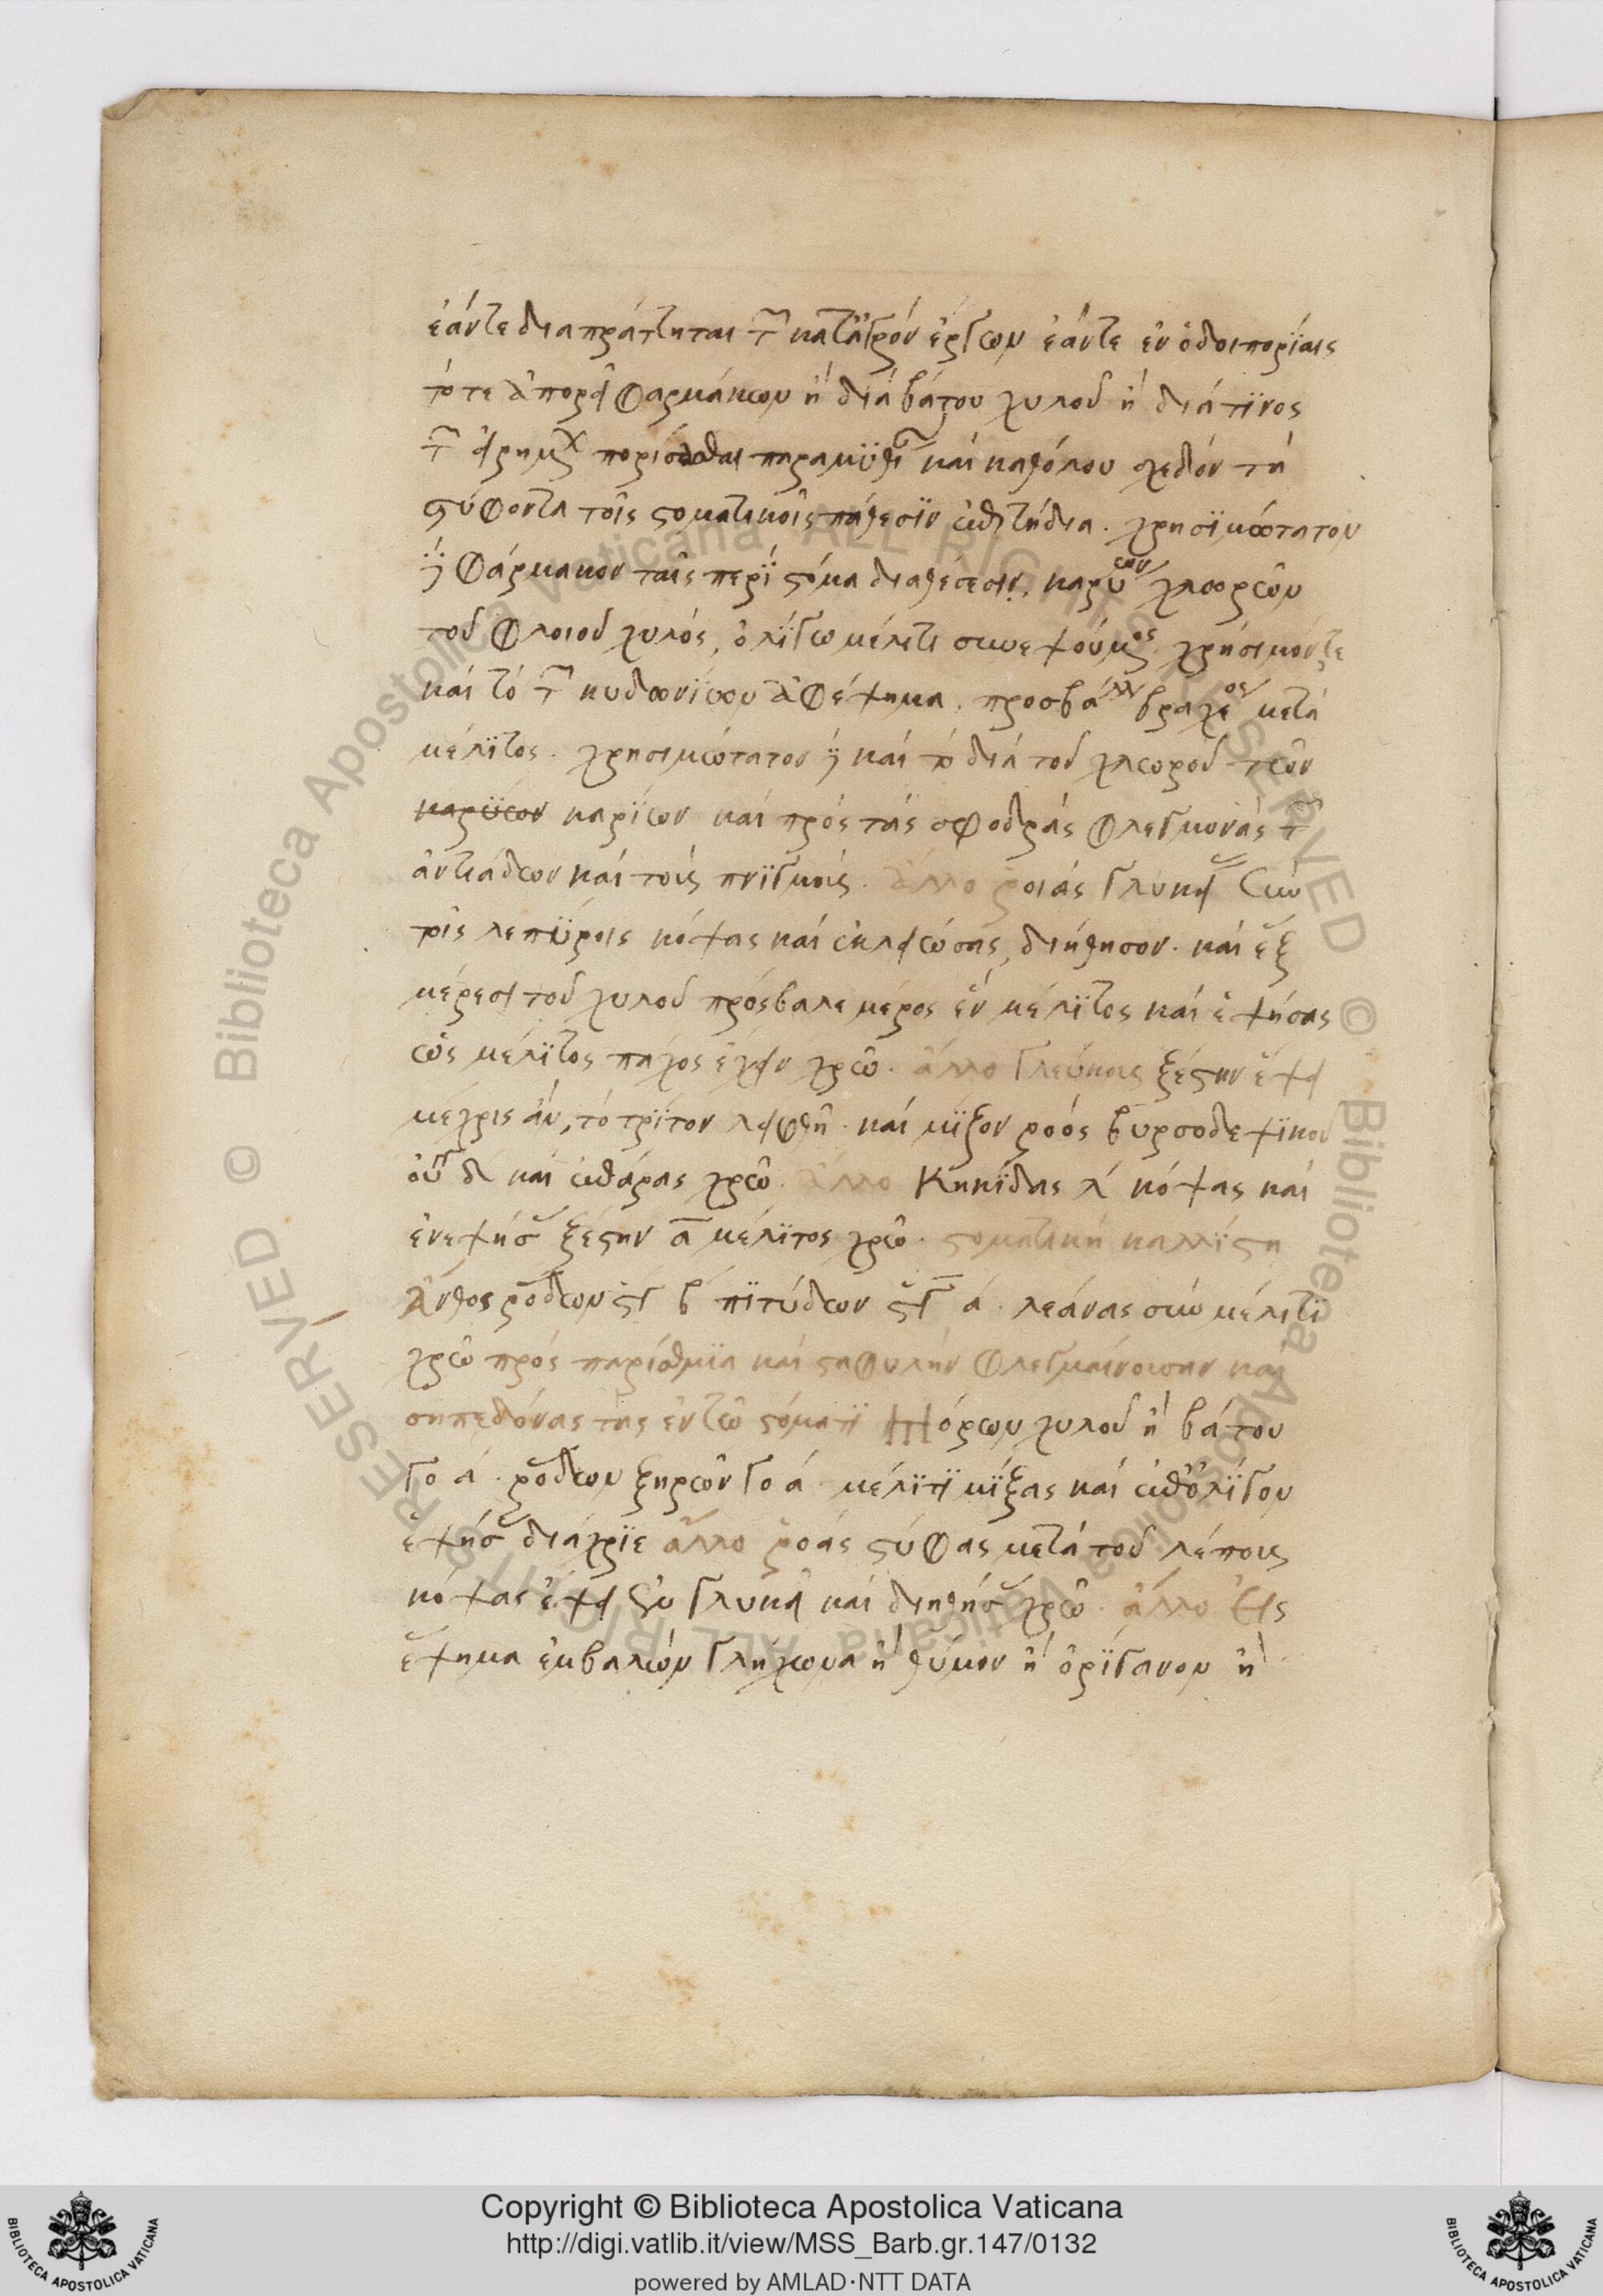 ἐάντε διαπράττηται τῶν κατ' ἀγρόν ἔργων ἐάντε ἐν ὁδοιπορίαις
τότε ἀπορεῖ φαρμάκων ἢ διὰ βάτου χυλοῦ ἢ διά τϊνος
τῶν πορίσασθαι καὶ καθόλου σχεδόν τὰ
στύφοντα τοῖς στοματικοῖς πάθεσϊν ἐπιτήδια. χρησϊμώτατον
φάρμακον ταῖς περὶ στόμα διαθέσεσιν. καρύων χλωρῶν
τοῦ φλοιοῦ χυλός, ὀλίγω μέλιτι συνεψούμενος. χρήσιμόν τε
καὶ τὸ τῶν κυδωνίων ἀφέψημα. βραχέος μετὰ
μέλϊτος. χρησιμώτατον καὶ τὸ διὰ τοῦ χλωροῦ τῶν
καρϋων καρίων καὶ πρὸς τὰς σφοδρὰς φλεγμονὰς τῶν
ἀντιάδων καὶ τοὺς πνϊγμούς. ἄλλο ῥοιὰς γλυκείας Σὺν
τοῖς λεπύροις κόψας καὶ ἐκλειώσας, διήθησον. καὶ ἓξ
μέρεσι τοῦ χυλοῦ πρόσβαλε μέρος ἓν μέλϊτος καὶ ἑψήσας
ὡς μέλϊτος παχος ἔχειν χρῶ. ἄλλο γλεύκους ξέστην ἕψει
μέχρις ἄν, τὸ τρϊτον λειφθῆ. καὶ μϊξον ῥοὸς βυρσοδεψϊκοῦ
οὐγ δ καὶ ἐπάρας χρῶ. ἄλλο Κηκϊδας λ κόψας καὶ
ἐνεψήσας ξέστην α μέλϊτος χρῶ. στοματικὴ καλλίστη
Ἄνθος ῥόδων στγ β πϊτύδων στγ α. λεάνας σὺν μέλιτϊ
χρῶ πρὸς παρίσθμϊα καὶ σταφυλὴν φλεγμαίνουσαν καὶ
σηπεδόνας τὰς ἐν τῶ στόματϊ Μόρων χυλοῦ ἢ βάτου
γο α. ῥόδων ξηρῶν γο α. μέλϊτϊ μϊξας καὶ ἐπ' ὀλϊγον
ἑψήσας διάχρϊε ἄλλο ῥοὰς στύφας μετὰ τοῦ λέπους
κόψας ἕψει σὺν γλυκεῖ καὶ διηθήσας χρῶ. ἄλλο Εἰς
ἕψημα ἐμβαλὼν γλήχωνα ἢ θύμον ἢ ὀρίγανον ἢ
Copyright © Biblioteca Apostolica Vaticana
http://digi.vatlib.it/view/MSS_Barb.gr.147/0132
powered by AMLAD·NTT DATA
BIBLIOTECA APOSTOLICA VATICANA
BIBLIOTECA APOSTOLICA VATICANA
© Biblioteca Apostolica Vaticana ALL RIGHTS RESERVED
© Biblioteca Apostolica Vaticana ALL RIGHTS RESERVED